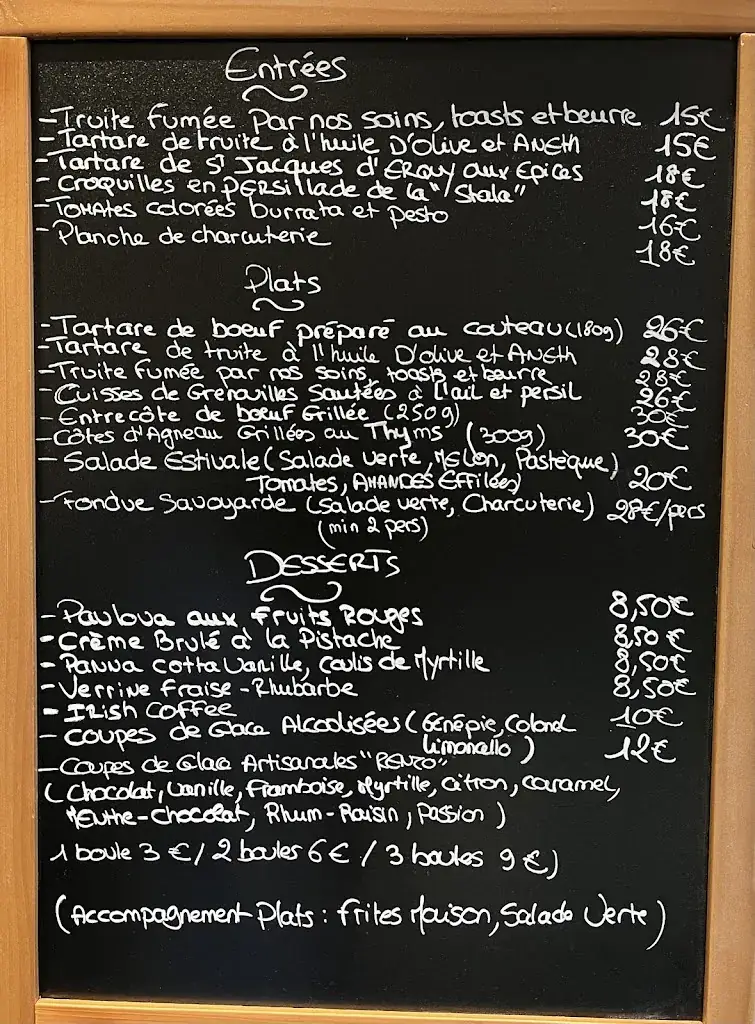 Entrées
- Truite fumée par nos soins, toasts et beurre 15€
- Tartare de truite à l'huile D'olive et ANETH 15€
- Tartare de St Jacques d'ERQUY aux Epices 18€
- Croquilles en PERSillade de la "Skala" 18€
- TOMATES colorées burrata et pesto 16€
- Planche de charcuterie 18€
Plats
- Tartare de boeuf préparé au couteau (180g) 26€
- Tartare de truite à l'huile D'olive et ANETH 28€
- Truite fumée par nos soins, toasts et beurre 28€
- Cuisses de Grenouilles Sautées à l'ail et persil 26€
- Entrecôte de boeuf Grillée (250g) 30€
- Côtes d'Agneau Grillées au Thyms (300g) 30€
- Salade Estivale (Salade verte, MELON, Pastèque)
Tomates, AMANDES EFFilées) 20€
- Fondue Savoyarde (Salade verte, Charcuterie) 28€/pers
(min 2 pers)
DESSERTS
- Pavlova aux fruits Rouges 8,50€
- Crème Brulé à la Pistache 8,50€
- Panna cotta Vanille, coulis de Myrtille 8,50€
- Verrine fraise - Rhubarbe 8,50€
- IRish COFFEE 10€
- Coupes de Glace Alcoolisées (Génépie, Colonel
Limonallo) 12€
- Coupes de Glace Artisanales "RENZO"
(Chocolat, Vanille, Framboise, Myrtille, Citron, Caramel,
MENTHE-Chocolat, Rhum-Raisin, Passion)
1 boule 3 € / 2 boules 6 € / 3 boules 9 €)
(Accompagnement Plats : Frites Maison, Salade Verte)